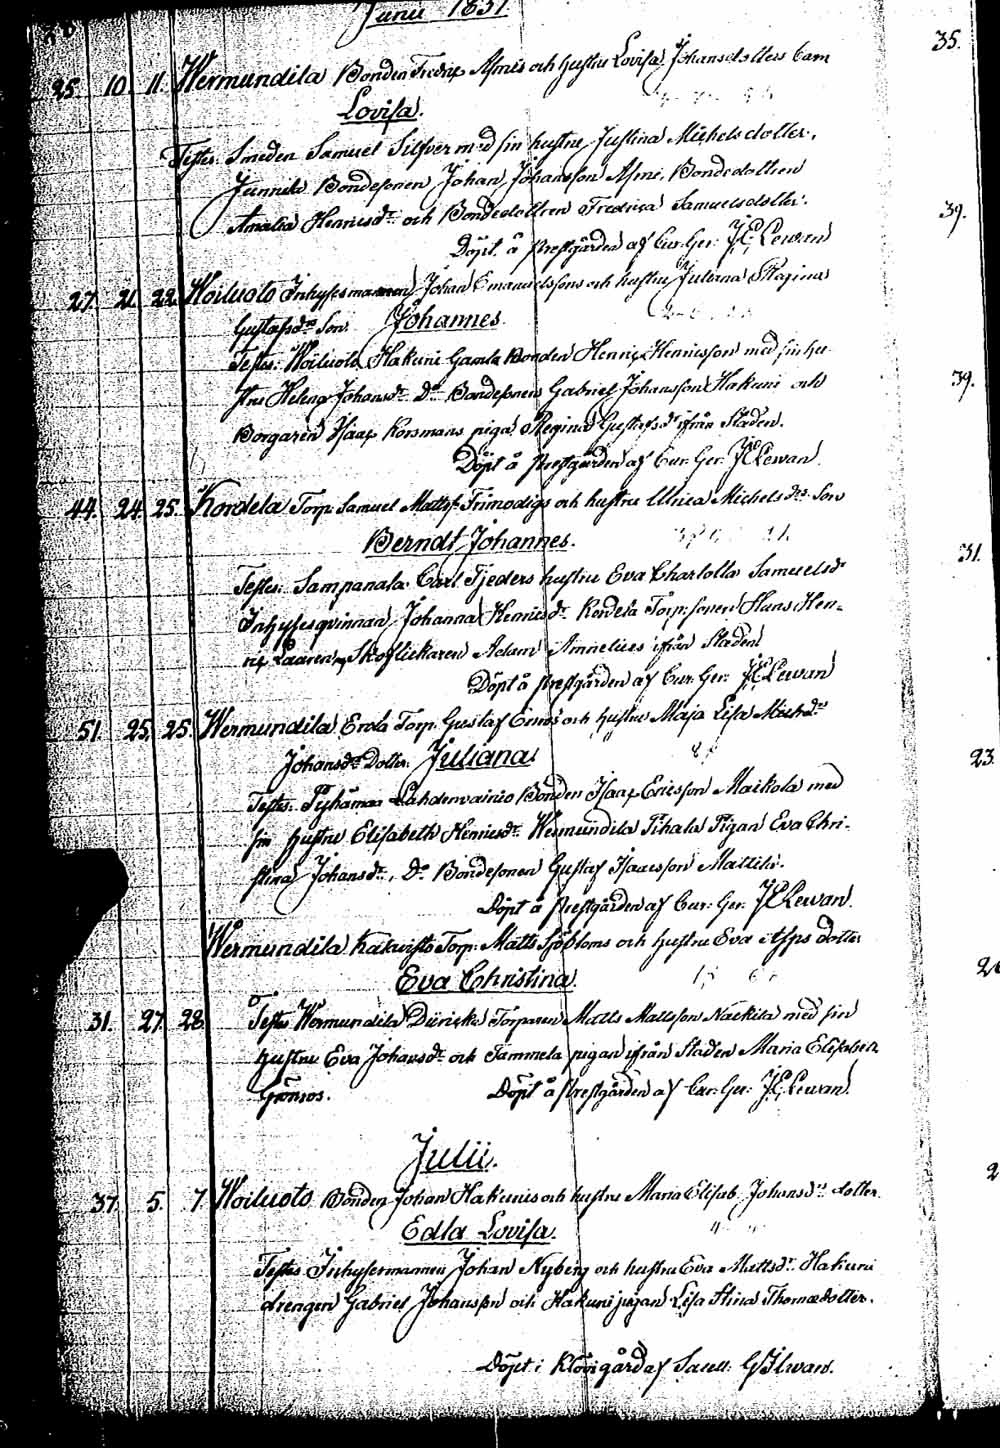 Junii 1851
35.
25. 10. 11. Wermundila Bonden Fredrix Asmis och hustru Lovisa Johansdotters barn
Lovisa.
Testes: Smeden Samuel Silfver med sin hustru Justina Michelsdotter,
Junnila Bondesonen Johan Johansson Asmi, Bondedottren
39.
Amalia Henricsdr och Bondedottren Fredrica Samuelsdotter.
Döpt å prestgården af Cur. Ger. J. C. Lewan
27. 21. 22. Woiluoto Inhysesmannen Johan Emanuelssons och hustru Juliana Regina
Gustafsdrs Son Johannes.
Testes: Woiluoto Hakuni Gamla Bonden Henric Henricsson med sin hu-
39.
stru Helena Johansdr Do Bondesonen Gabriel Johansson Hakuni och
Borgaren Isaac Korsmans piga Regina Gustafsdr ifrån Staden.
Döpt å prestgården af Cur. Ger. J. C. Lewan.
44. 24. 25. Kordela Torp. Samuel Mattss. Trimodigs och hustru Ulrica Michelsdrs Son
Berndt Johannes.
31.
Testes: Sampanala Carl Tjeders hustru Eva Charlotta Samuelsdr
Inhysesqvinnan Johanna Henricsdr Kordela Torp. sonen Hans Hen-
ric Skoflickaren Adam Amnelius ifrån Staden
Döpt å prestgården af Cur. Ger. J. C. Lewan
51. 25. 25. Wermundila Torp. Gustaf och hustru Maja Lisa
23.
Johansdrs Dotter Juliana
Testes: Pyhämaa Lahdenvainio Bonden Isaac Ericsson Maikola med
sin hustru Elisabeth Henricsdr Wermundila Pihala Pigan Eva Chri-
stina Johansdr, Do Bondesonen Gustaf Isacsson Mattila.
Döpt å prestgården af Cur. Ger. J. C. Lewan.
Wermundila Torp. Matts Sjöbloms och hustru Eva dotter
Eva Christina.
31. 27. 28. Testes Wermundila Torparen Matts Mattsson Näckilä med sin
hustru Eva Johansdr och Tammela pigan ifrån Staden Maria Elisabeth
Grönroos. Döpt å prestgården af Cur. Ger. J. C. Lewan.
Julii.
37. 5. 7. Woiluoto Bonden Johan Hakunis och hustru Maria Elisab. Johansdrs dotter
Edla Lovisa.
Testes Inhysesmannen Johan Nyberg och hustru Eva Mattsdr. Hakuni
drengen Gabriel Johansson och Hakuni pigan Lisa Stina Thomasdotter.
Döpt i af Sacell.